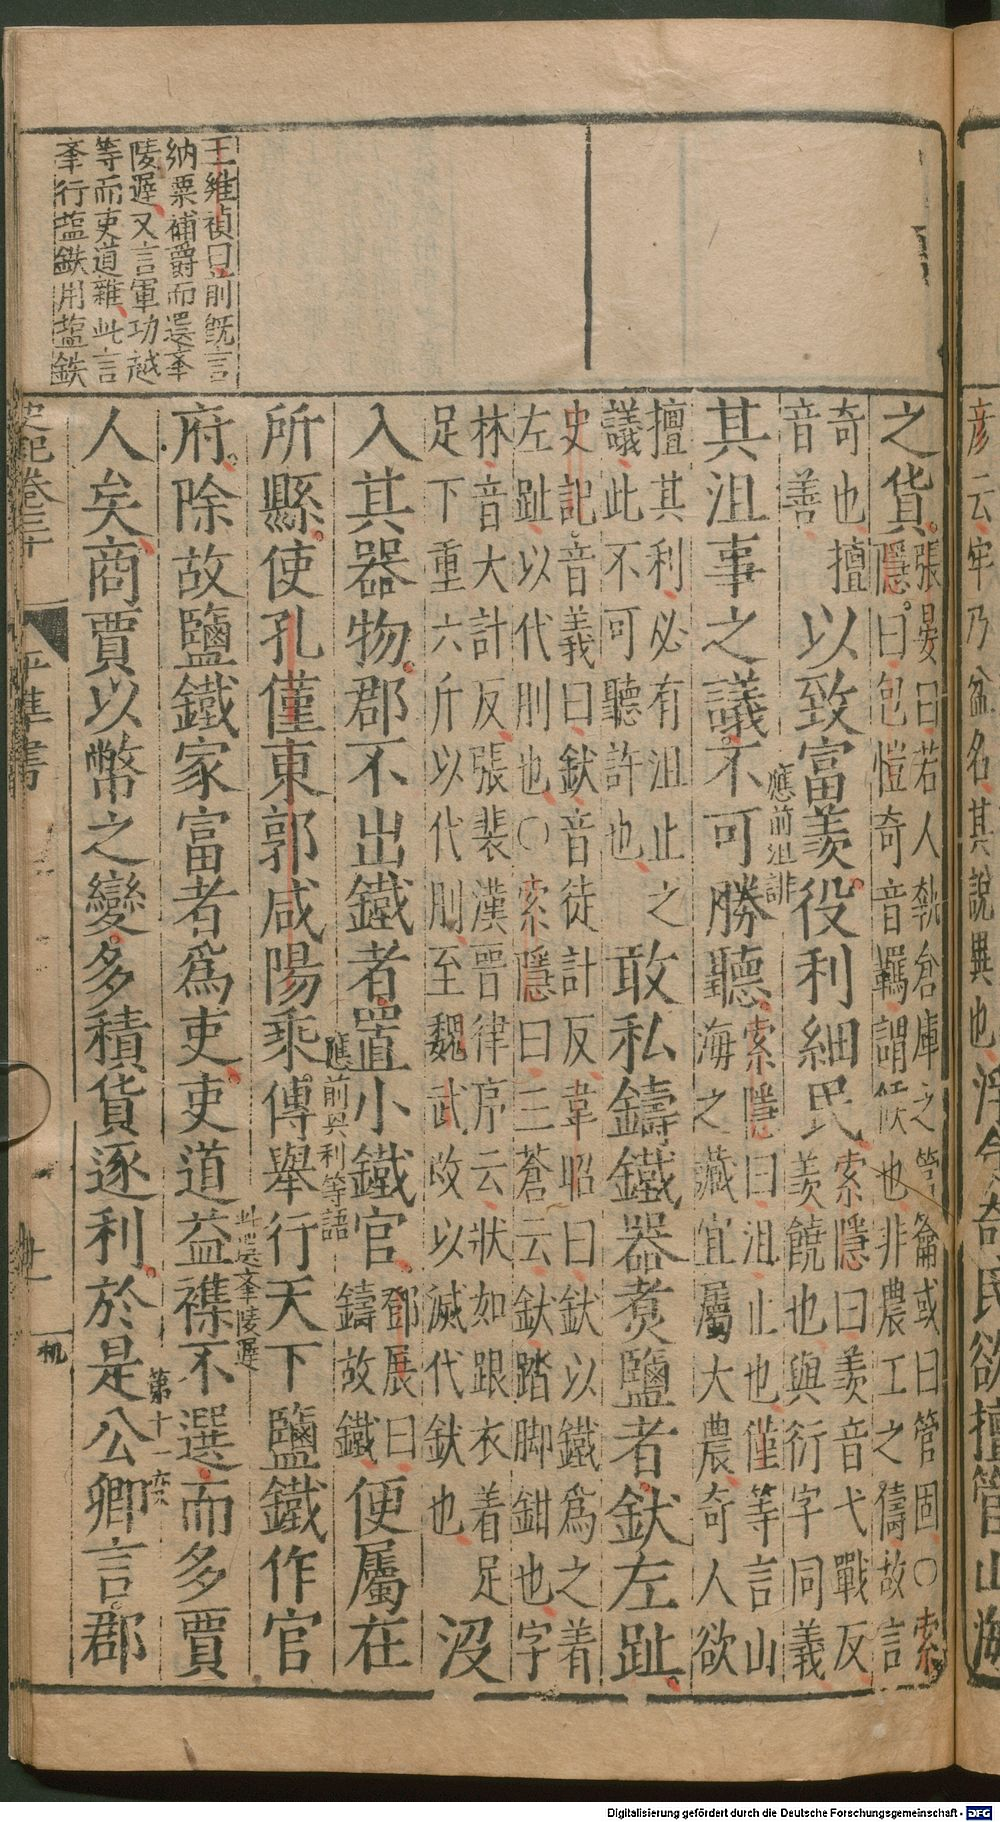 彦云牢乃盆名其說異也浮食奇民欲擅管山海
之貨。
張晏曰若人執倉庫之管籥或曰管固○索
隱曰包愷奇音羈謂候也非農工之儔故言
奇也擅
音善
以致富羨役利細民
索隱曰羨音弋戰反
羨饒也與衍字同義
應前沮誹
其沮事之議不可勝聽
索隱曰沮止也僅等言山
海之藏宜屬大農奇人欲
擅其利必有沮止之
議此不可聽許也
敢私鑄鐵器煑鹽者釱左趾。
史記音義曰釱音徒計反韋昭曰釱以鐵為之着
左趾以代刖也○索隱曰三蒼云釱踏脚鉗也字
林音大計反張裴漢晉律序云狀如跟衣着足
足下重六斤以代刖至魏武改以滅代釱也
沒
入其器物。郡不出鐵者置小鐵官
鄧展曰
鑄故鐵
便屬在
應前興利等語
所縣。使孔僅東郭咸陽乘傳舉行天下鹽鐵作官
此選舉陵遲
府。除故鹽鐵家富者爲吏。吏道益襍不選而多賈
第十一变
人矣商賈以幣之變多積貨逐利。於是公卿言。郡
王維禎曰前既言
納粟補爵而選舉
陵遲又言軍功越
等而吏道雜此言
舉行塩鉄用塩鉄
史記卷三十
平準書
十一
机
Digitalisierung gefördert durch die Deutsche Forschungsgemeinschaft - DFG